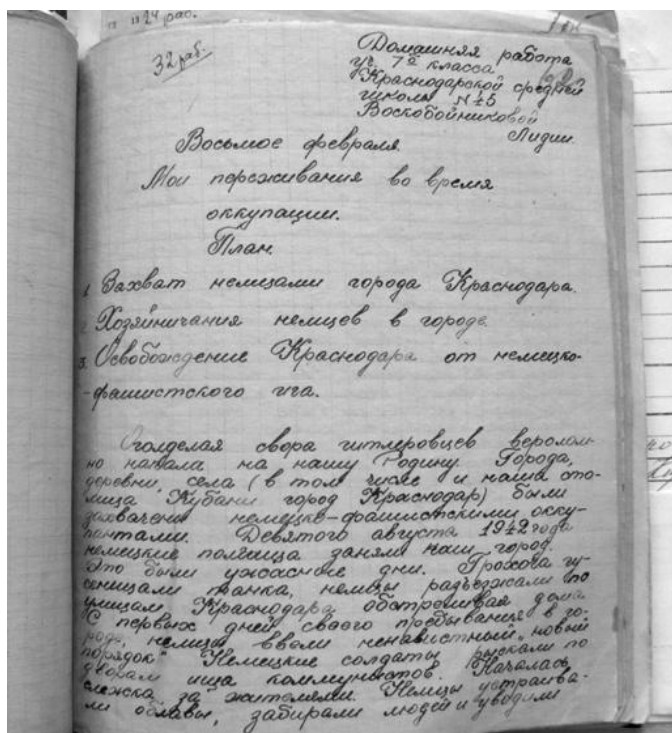 24 раб.
32 раб.
Домашняя работа
уч. 7а класса
Краснодарской средней
школы №45
Воскобойниковой
Лидии.
Восьмое февраля.
Мои переживания во время
оккупации.
План.
1. Захват немцами города Краснодара.
2. Хозяйничания немцев в городе.
3. Освобождение Краснодара от немецко-
-фашистского ига.
Оголделая свора гитлеровцев веролом-
но напала на нашу Родину. Города,
деревни, села (в том числе и наша сто-
лица Кубани город Краснодар) были
захвачены немецко-фашистскими окку-
пантами. Девятого августа 1942 года
немецкие полчища заняли наш город.
Это были ужасные дни. Грохоча гу-
сеницами танка, немцы разъезжали по
улицам Краснодара обстреливая дома.
С первых дней своего пребывания в го-
роде, немцы ввели ненавистный „новый
порядок" Немецкие солдаты рыскали по
дворам ища коммунистов. Началась
слежка за жителями. Немцы устраива-
ли облавы, забирали людей и уводили